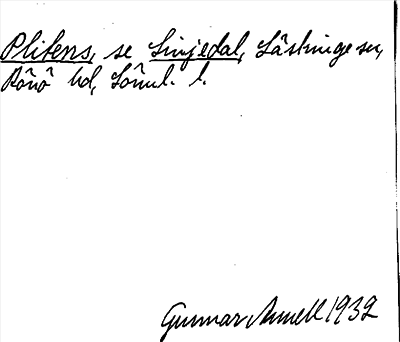 Plitens, se Linjedal, Låstringe sn,
Rönö hd, Sörml. l.
Gunnar Annell 1932